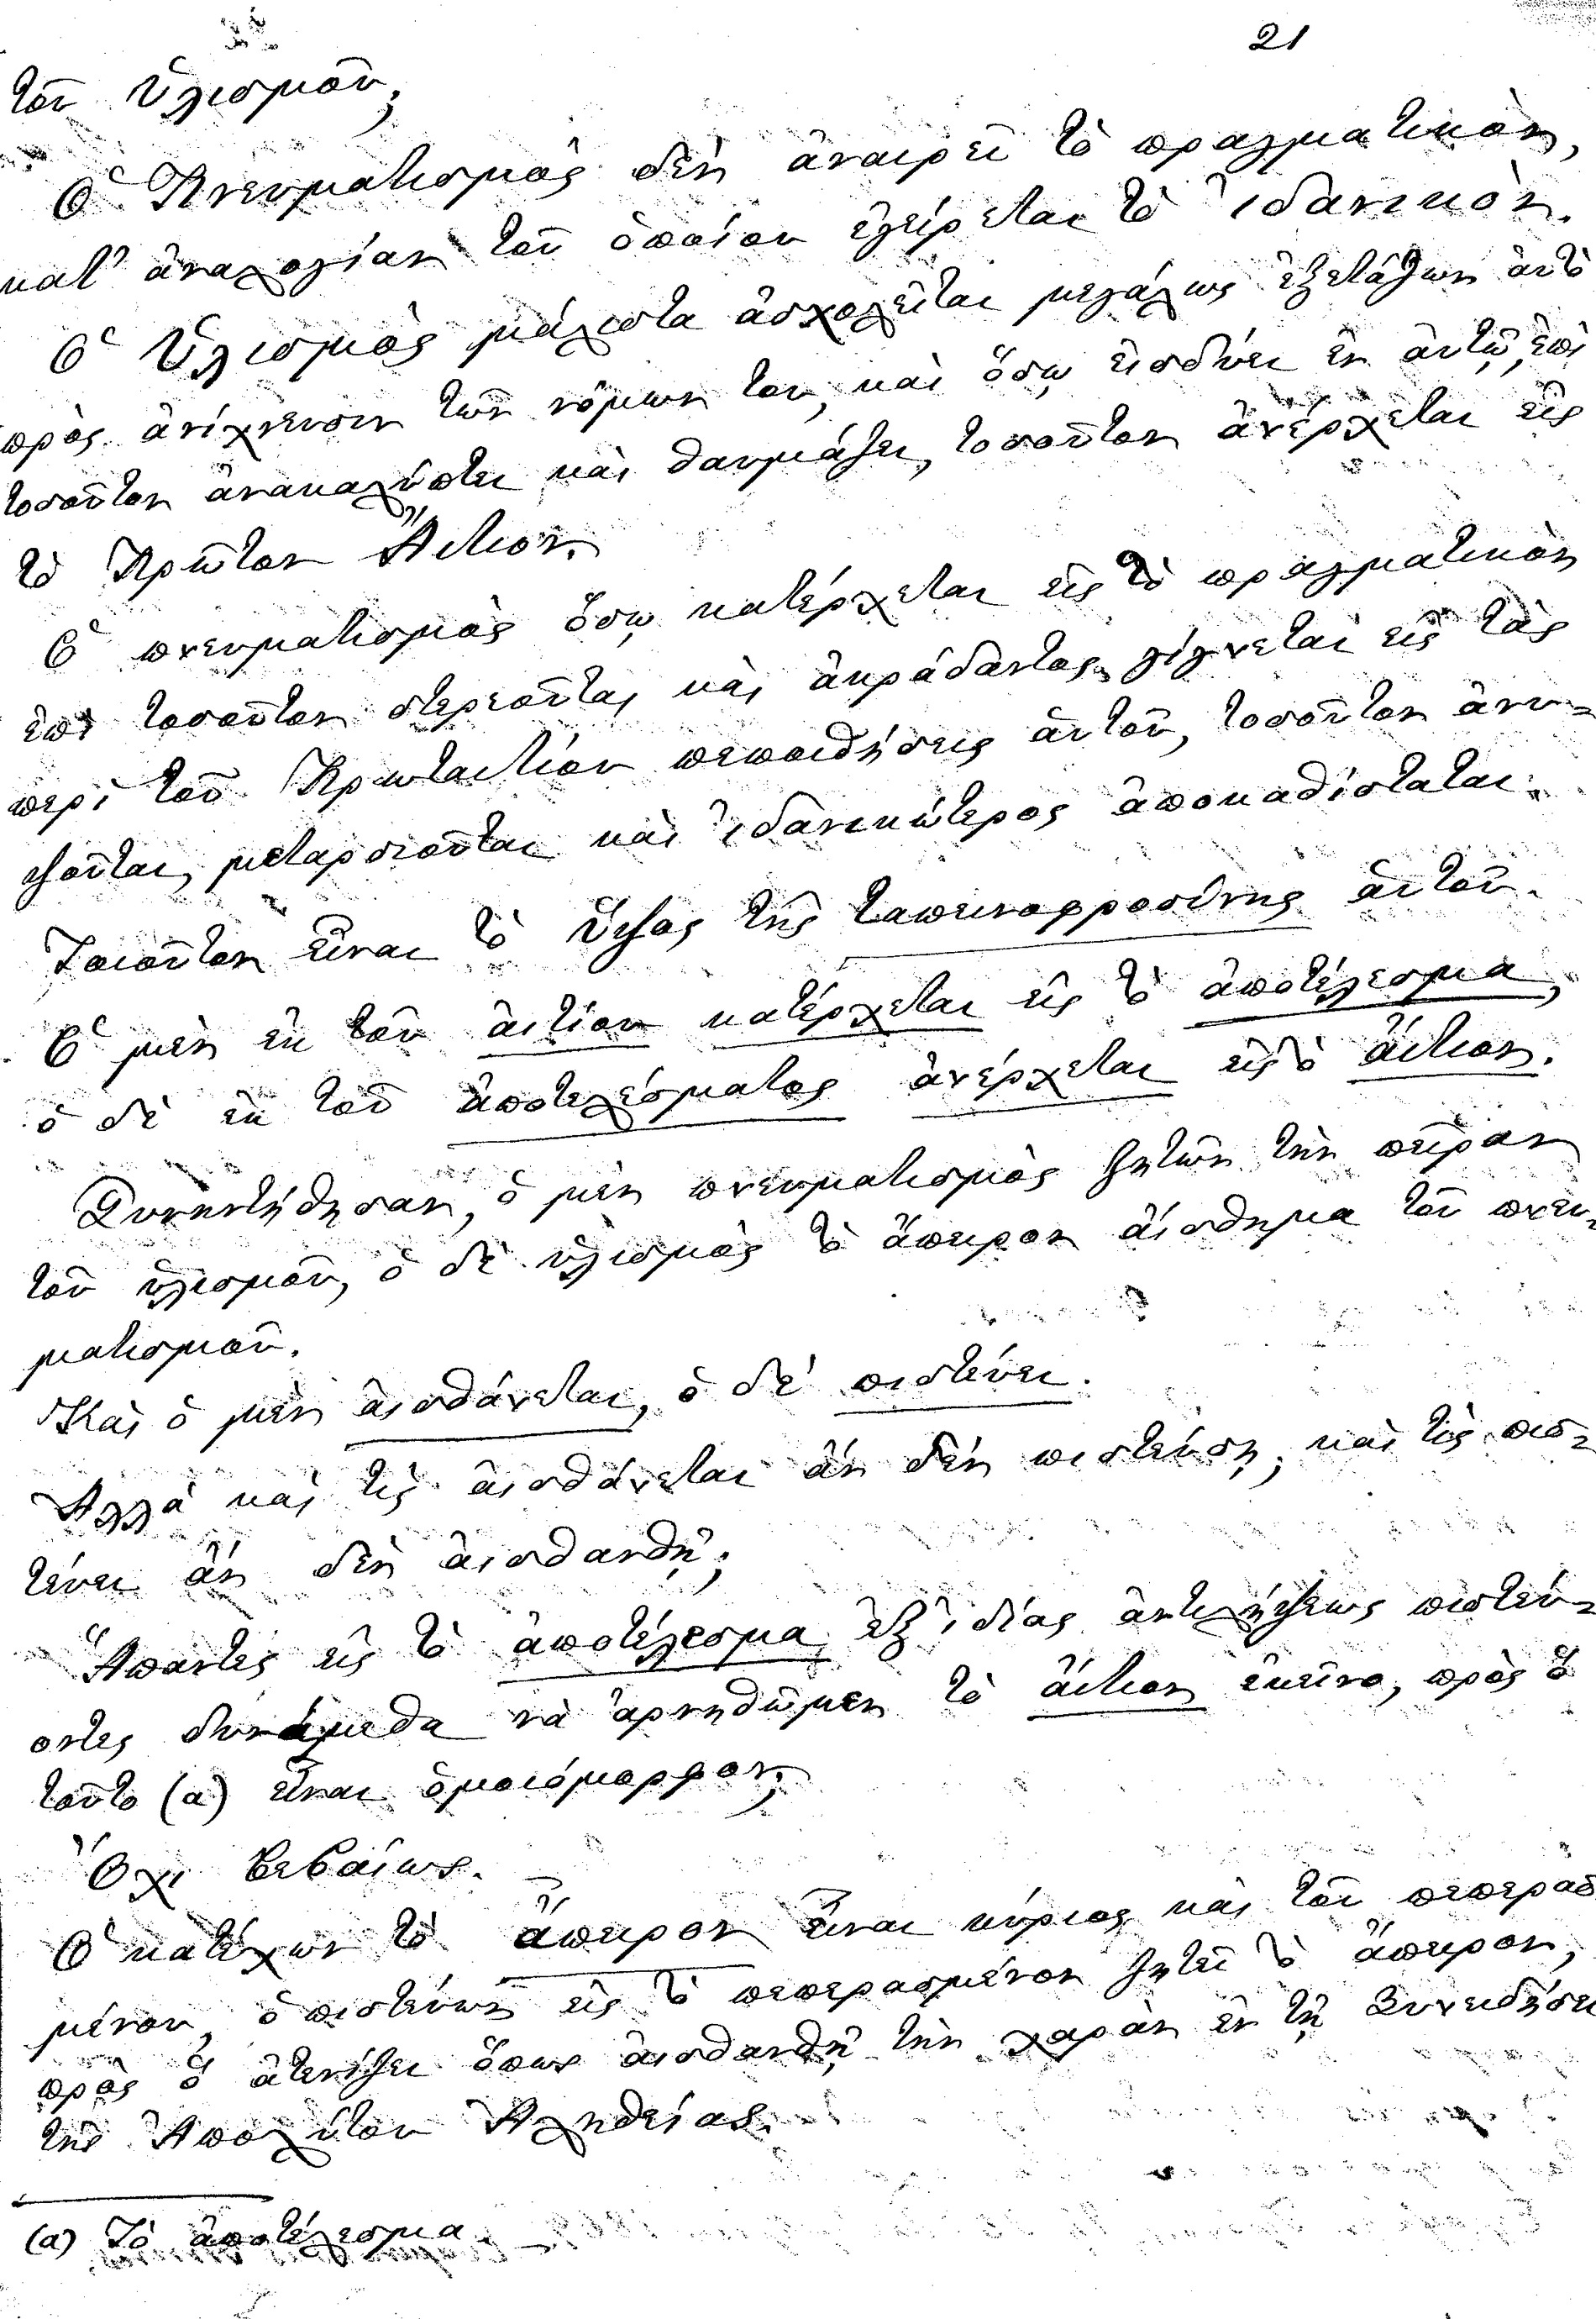 21
τοῦ Ὑλισμοῦ;
Ὁ Πνευματισμὸς δὲν ἀναιρεῖ τὸ πραγματικὸν,
κατ' ἀναλογίαν τοῦ ὁποίου ἐγείρεται τὸ ἰδανικὸν.
Ὁ Ὑλισμὸς μάλιστα ἀσχολεῖται μεγάλως ἐξετάζων ἀυτὸ
πρὸς ἀνίχνευσιν τῶν νόμων του, καὶ ὅσῳ εἰσδύει ἐν ἀυτῷ, ἐπὶ
τοσοῦτον ἀνακαλύπτει καὶ θαυμάζει, τοσοῦτον ἀνέρχεται εἰς
τὸ Πρῶτον Ἄιτιον.
Ὁ πνευματισμὸς ὅσῳ κατέρχεται εἰς τὸ πραγματικὸν
ἐπὶ τοσοῦτον στερεοῦται καὶ ἀκράδαντος γίγνεται εἰς τὰς
περὶ τοῦ Πρωταιτίου πεποιθήσεις ἀυτοῦ, τοσοῦτον ἀνυ=
ψοῦται, μεταρσιοῦται καὶ ἰδανικώτερος ἀποκαθίσταται.
Τοιοῦτον εἶναι τὸ ὕψος τῆς ταπεινοφροσύνης ἀυτοῦ.
Ὁ μὲν ἐκ τοῦ ἀιτίου κατέρχεται εἰς τὸ ἀποτέλεσμα,
ὁ δὲ ἐκ τοῦ ἀποτελέσματος ἀνέρχεται εἰς τὸ ἄιτιον.
Συνηντήθησαν, ὁ μὲν πνευματισμὸς ζητῶν τὴν πεῖραν
τοῦ ὑλισμοῦ, ὁ δὲ ὑλισμὸς τὸ ἄπειρον ἀίσθημα τοῦ πνευ=
ματισμοῦ.
Καὶ ὁ μὲν ἀισθάνεται, ὁ δὲ πιστέυει.
Ἀλλὰ καὶ τὶς ἀισθάνεται ἂν δὲν πιστέυσῃ, καὶ τὶς πισ=
τέυει ἂν δὲν ἀισθανθῇ;
Ἅπαντες εἰς τὸ ἀποτέλεσμα ἐξ ἰδίας ἀντιλήψεως πιστέυ=
οντες δυνάμεθα νὰ ἀρνηθῶμεν τὸ ἄιτιον ἐκεῖνο, πρὸς ὃ
τοῦτο (α) εἶναι ὁμοιόμορφον;
Ὄχι βεβαίως.
Ὁ κατέχων τὸ ἄπειρον εἶναι κύριος καὶ τοῦ πεπερασ
μένου, ὁ πιστέυων εἰς τὸ πεπερασμένον ζητεῖ τὸ ἄπειρον,
πρὸς ὃ ἀτενίζει ὅπως ἀισθανθῇ τὴν χαρὰν ἐν τῇ Συνειδήσει
τῆς Ἀπολύτου Ἀληθείας.
(α) Τὸ ἀποτέλεσμα.